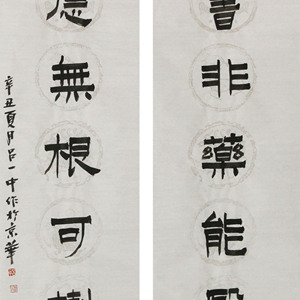 書非藥能
無根可
辛丑夏月呂一中作於京華